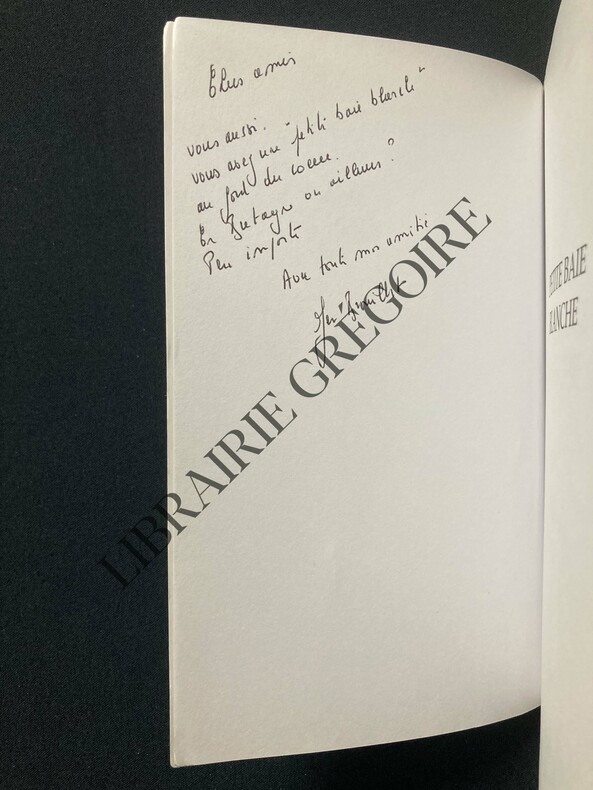 Chers amis
vous aussi.
vous avez une "petite baie blanche"
au fond du coeur.
En Bretagne ou ailleurs ?
Peu importe
Avec toute mon amitié
PETITE BAIE
BLANCHE
LIBRAIRIE GRÉGOIRE